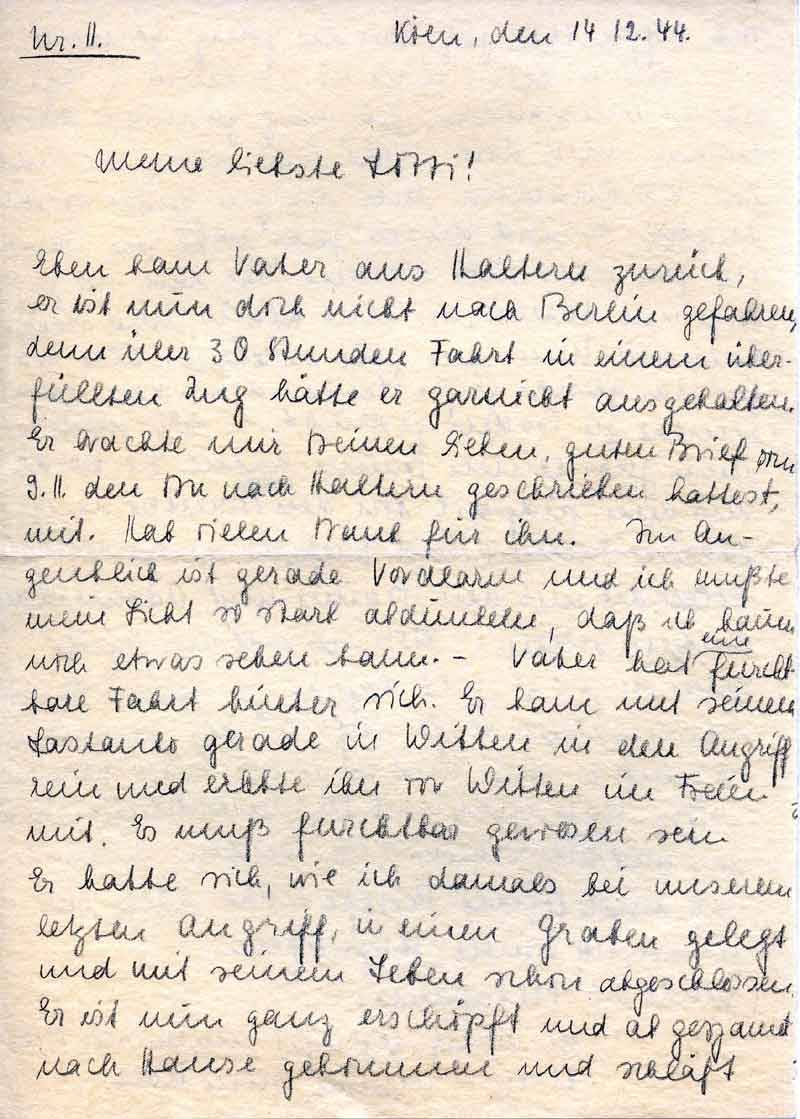 Nr. 11.
Köln, den 14 12. 44.
Meine liebste Lötti!
Eben kam Vater aus Haltern zurück,
er ist nun doch nicht nach Berlin gefahren,
denn über 30 Stunden Fahrt in einem über-
füllten Zug hätte er garnicht ausgehalten.
Er brachte mir Deinen lieben, guten Brief vom
9.11. den Du nach Haltern geschrieben hattest,
mit. Hab vielen Dank für ihn. Im Au-
genblick ist gerade Voralarm und ich mußte
mein Licht so stark abdunkeln, daß ich kaum
noch etwas sehen kann. - Vater hat eine furcht-
bare Fahrt hinter sich. Er kam mit seinem
Lastauto gerade in Witten in den Angriff
rein und erlebte ihn vor Witten im Freien
mit. Es muß furchtbar gewesen sein
Er hatte sich, wie ich damals bei unserem
letzten Angriff, in einen Graben gelegt
und mit seinem Leben schon abgeschlossen.
Er ist nun ganz erschöpft und abgespannt
nach Hause gekommen und schläft